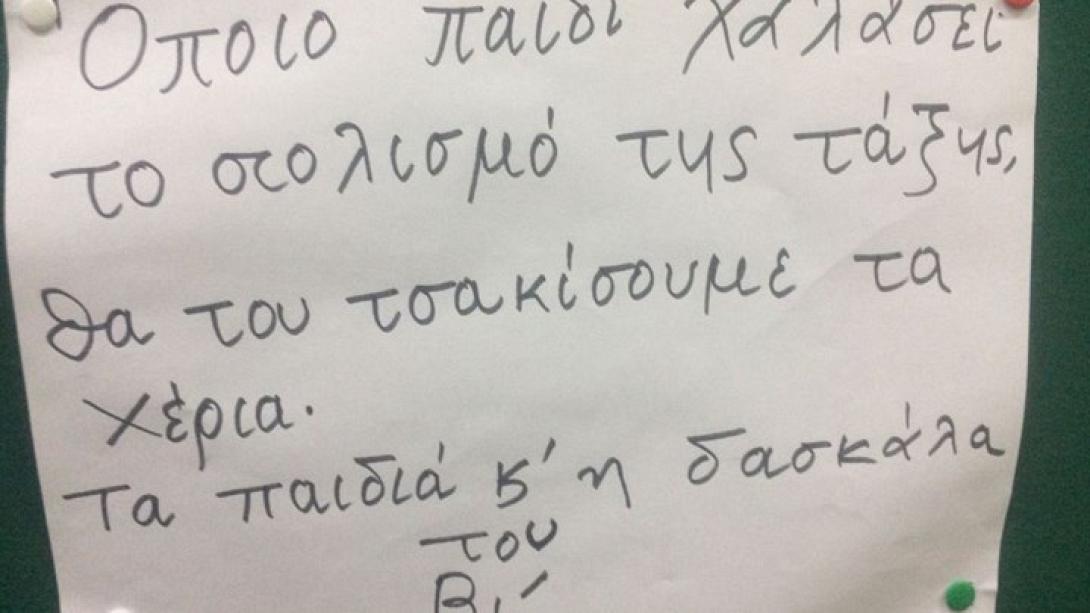 Όποιο παιδί χαλάσει
το στολισμό της τάξης,
θα του τσακίσουμε τα
χέρια.
Τα παιδιά κ' η δασκάλα
του
Β1'